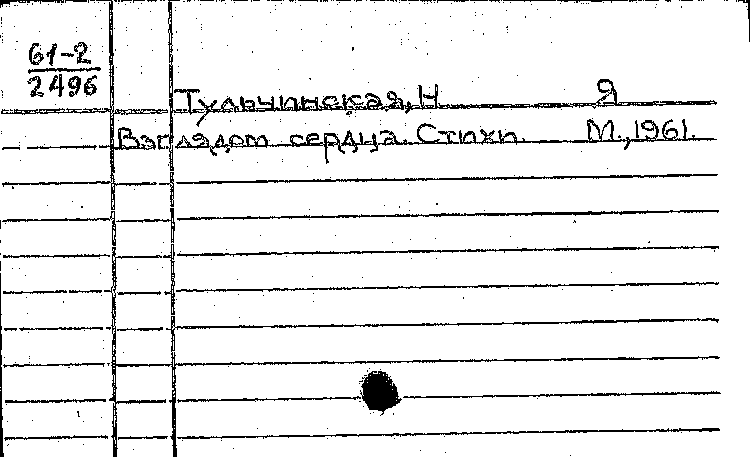 61-2
2496
Тульчинская, Н Я
Взглядом сердца. Стихи. М., 1961.